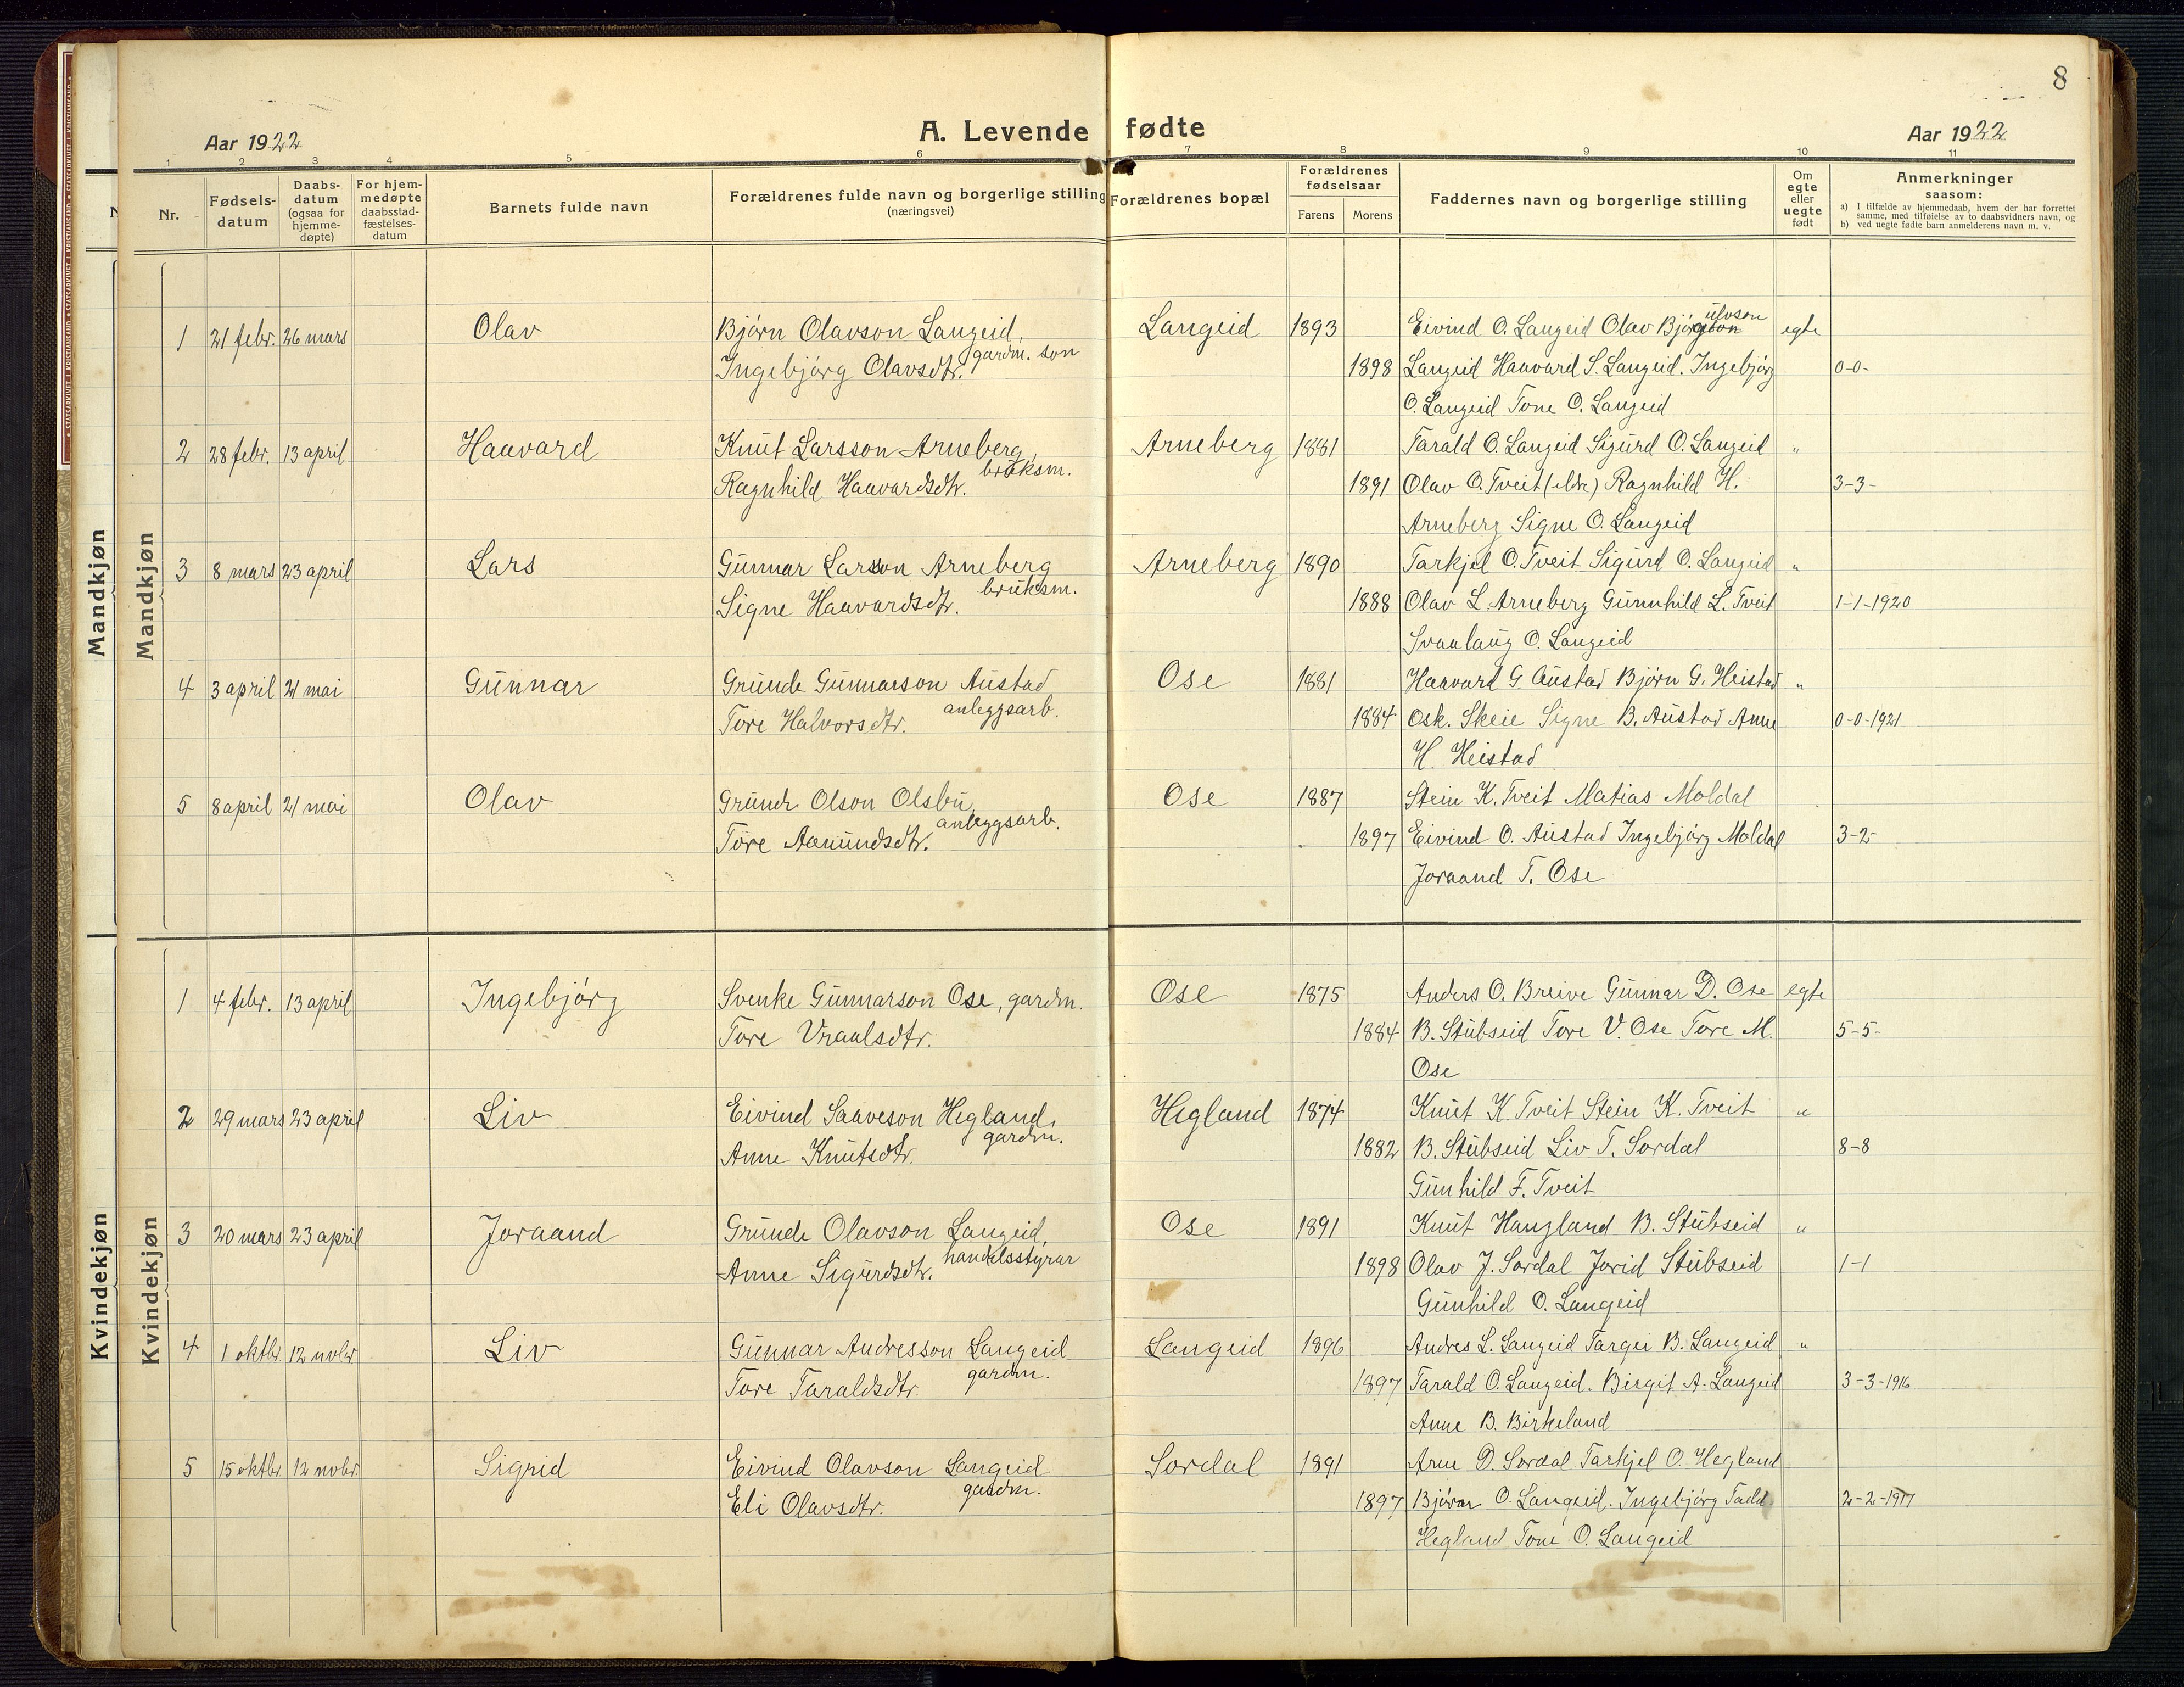 8
Aar 1922
A. Levende fødte
Aar 1922
1 2 3 4 5 6 7 8 9 10 11
Nr.
Fødsels-
datum
Daabs-
datum
(ogsaa for
hjemme-
døpte)
For hjem-
medøpte
daabsstad-
fæstelses-
datum
Barnets fulde navn
Forældrenes fulde navn og borgerlige stilling
(næringsvei)
Forældrenes bopæl
Forældrenes
fødselsaar
Farens Morens
Faddernes navn og borgerlige stilling
Om
egte
eller
uegte
født
Anmerkninger
saasom:
a) I tilfælde av hjemmedaab, hvem der har forrettet
samme, med tilføielse av to daabsvidners navn, og
b) ved uegte fødte barn anmelderens navn m. v.
Mandkjøn
Mandkjøn
1 21 febr. 26 mars Olav Bjørn Olavson Langeid, Langeid 1893 Eivind O. Langeid Olav Bjørgulvson egte
Ingebjørg Olavsdtr. gardm. son 1898 Langeid Haavard S. Langeid. Ingebjørg 0-0-
O. Langeid Tone O. Langeid
2 28 febr. 13 april Haavard Knut Larsson Arneberg, Arneberg 1881 Tarald O. Langeid Sigurd O. Langeid "
Ragnhild Haavardsdtr. bruksm. 1891 Olav O. Tveit (eldre) Ragnhild H. 3-3-
Arneberg Signe O. Langeid
3 8 mars 23 april Lars Gunnar Larsson Arneberg Arneberg 1890 Tarkjel O. Tveit Sigurd O. Langeid "
Signe Haavardsdtr. bruksm. 1888 Olav L. Arneberg Gunnhild L. Tveit 1-1-1920
Svaalaug O. Langeid
4 3 april 21 mai Gunnar Grunde Gunnarson Austad Ose 1881 Haavard G. Austad Bjørn G. Heistad "
Tore Halvorsdtr. anleggsarb. 1884 Osk. Skeie Signe B. Austad Anne 0-0-1921
H. Heistad
5 8 april 21 mai Olav Grunde Olson Olsbu Ose 1887 Stein K. Tveit Matias Moldal
Tore Aamundsdtr. anleggsarb. 1897 Eivind O. Austad Ingebjørg Moldal 3-2-
Joraand T. Ose
Kvindekjøn
Kvindekjøn
1 4 febr. 13 april Ingebjørg Svenke Gunnarson Ose, gardm. Ose 1875 Anders O. Breive Gunnar D. Ose egte
Tore Vraalsdtr. 1884 B. Stubseid Tore V. Ose Tore M. 5-5-
Ose
2 29 mars 23 april Liv Eivind Saaveson Hegland, Hegland 1874 Knut K. Tveit Stein K. Tveit "
Anne Knutsdtr. gardm. 1882 B. Stubseid Liv T. Sordal 8-8
Gunhild F. Tveit
3 20 mars 23 april Joraand Grunde Olavson Langeid, Ose 1891 Knut Haugland B. Stubseid "
Anne Sigurdsdtr. handelsstyrar 1898 Olav J. Sordal Jorid Stubseid 1-1
Gunhild O. Langeid
4 1 oktbr. 12 novbr. Liv Gunnar Andresson Langeid Langeid 1896 Andres L. Langeid Targei B. Langeid "
Tore Taraldsdtr. gardm. 1897 Tarald O. Langeid. Birgit A. Langeid 3-3-1916
Anne B. Birkeland
5 15 oktbr. 12 novbr. Sigrid Eivind Olavson Langeid Sordal 1891 Arne D. Sordal Tarkjel O. Hegland
Eli Olavsdtr. gardm. 1897 Bjørn O. Langeid. Ingebjørg 2-2-1917
Hegland Tone O. Langeid